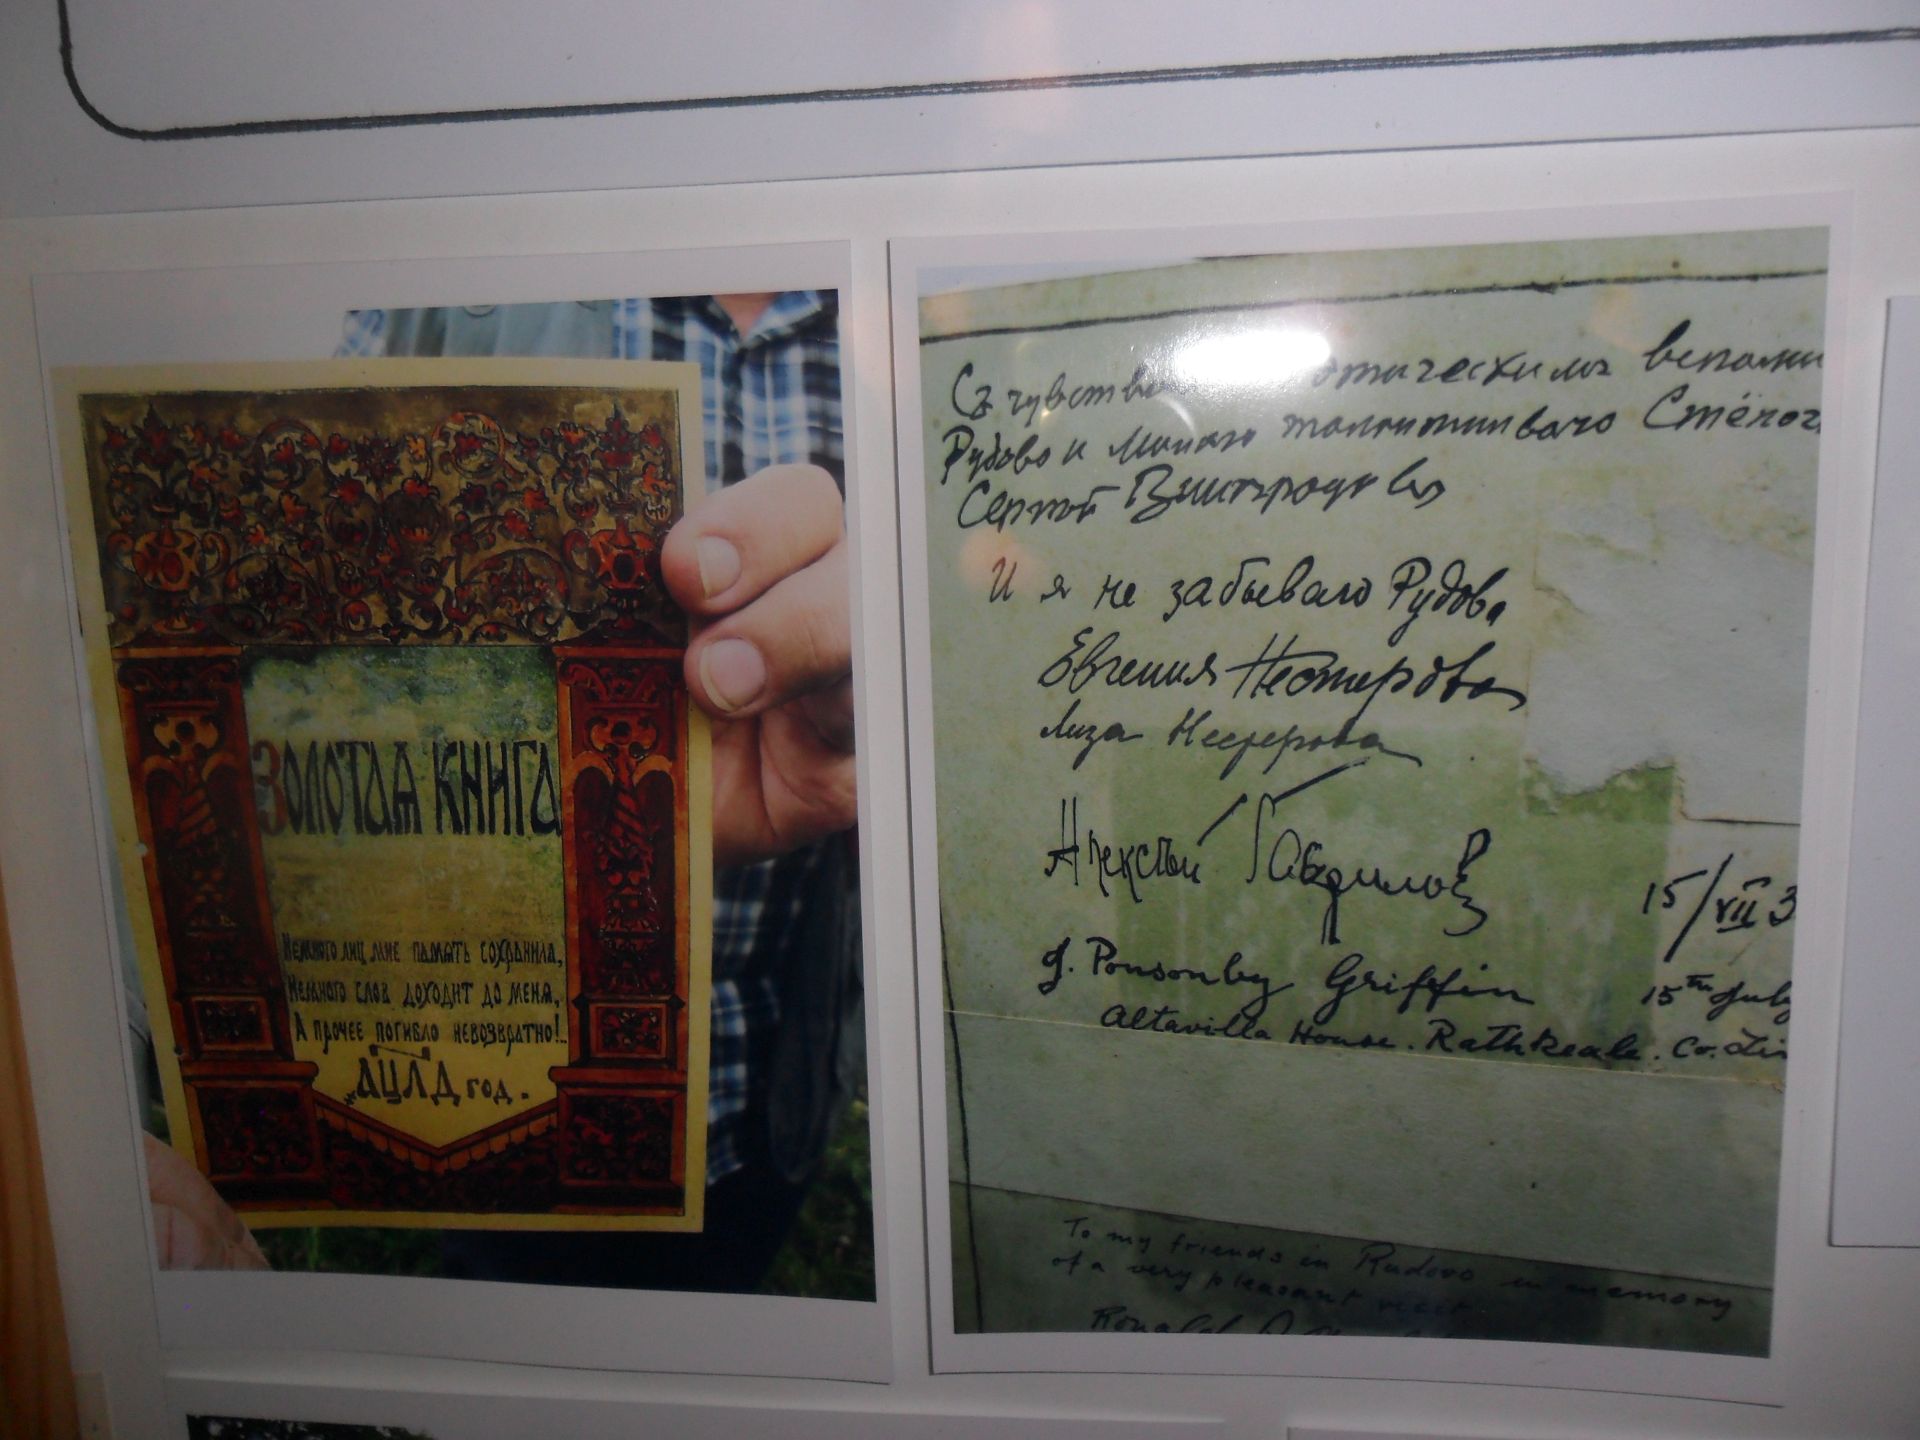 ЗОЛОТАЯ КНИГА
Немного лиц мне память сохранила,
Немного слов доходит до меня,
А прочее погибло невозвратно!..
АЦЛД год.
Съ чувств вспомни
Рудово и Стёпоч
Сергей
И я не забываю Рудова
Евгения Нестерова
Лиза Нестерова
Алексѣй Гаврилов 15/VII 3
J. Ponsonby Griffin 15th July
Altavilla House. Rathkeale. Co. Lim
To my friends in Rudovo in memory
of a very pleasant visit
Ronald